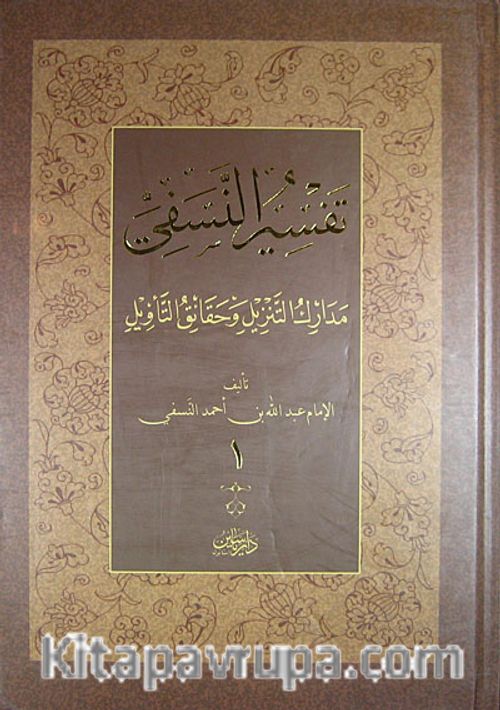 تَفْسِيرُ النَّسَفِيِّ
مَدَارِكُ التَّنْزِيلِ وَحَقَائِقُ التَّأْوِيلِ
تأليف
الإمام عبد الله بن أحمد النَّسفي
١
kitapavrupa.com